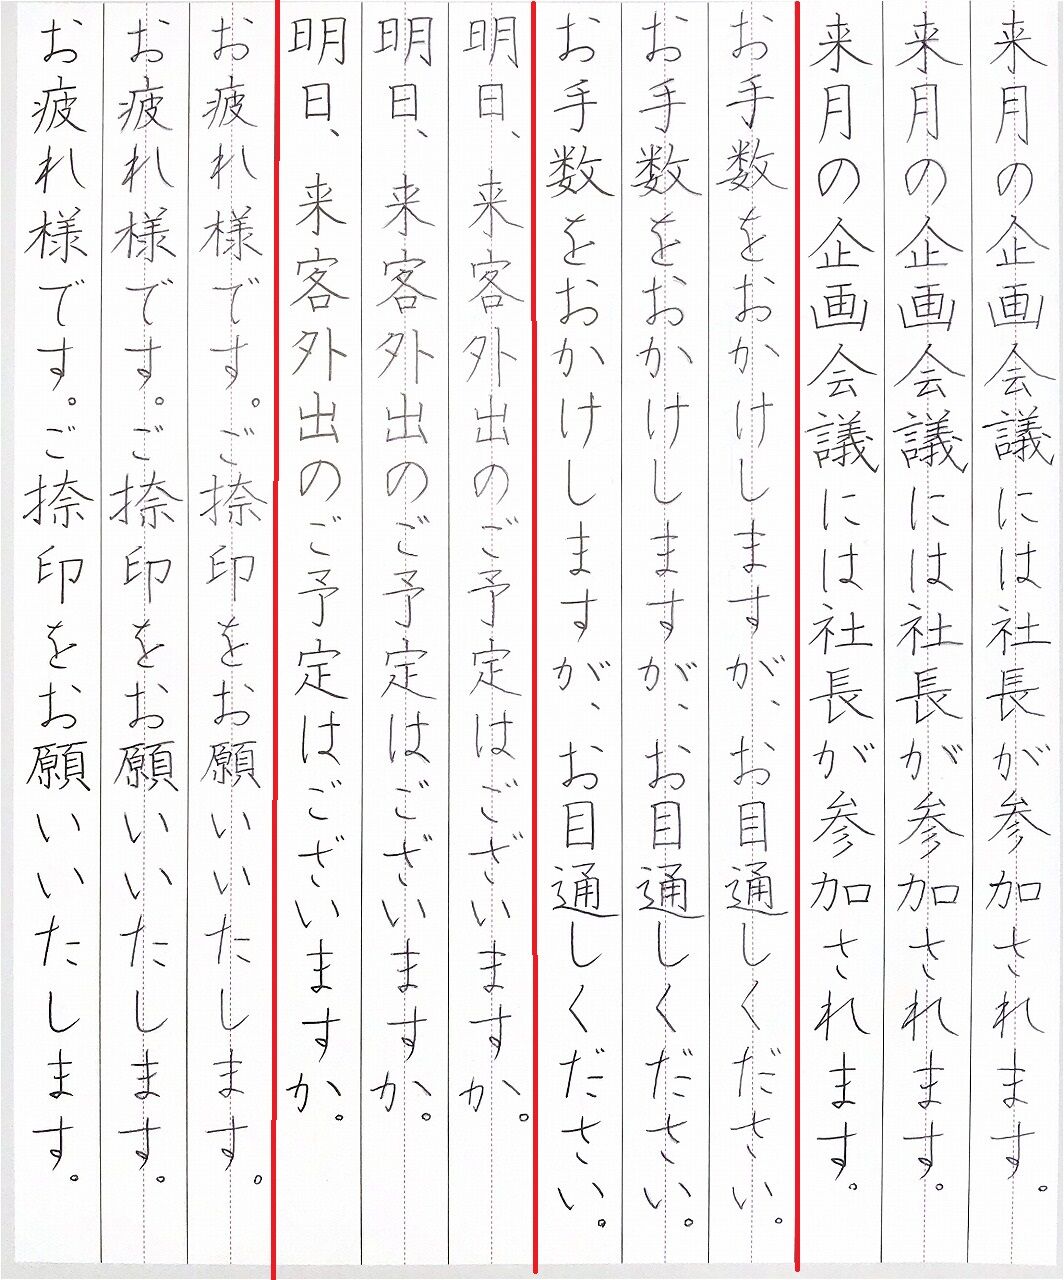 来月の企画会議には社長が参加されます。
来月の企画会議には社長が参加されます。
来月の企画会議には社長が参加されます。
お手数をおかけしますが、お目通しください。
お手数をおかけしますが、お目通しください。
お手数をおかけしますが、お目通しください。
明日、来客外出のご予定はございますか。
明日、来客外出のご予定はございますか。
明日、来客外出のご予定はございますか。
お疲れ様です。ご捺印をお願いいたします。
お疲れ様です。ご捺印をお願いいたします。
お疲れ様です。ご捺印をお願いいたします。